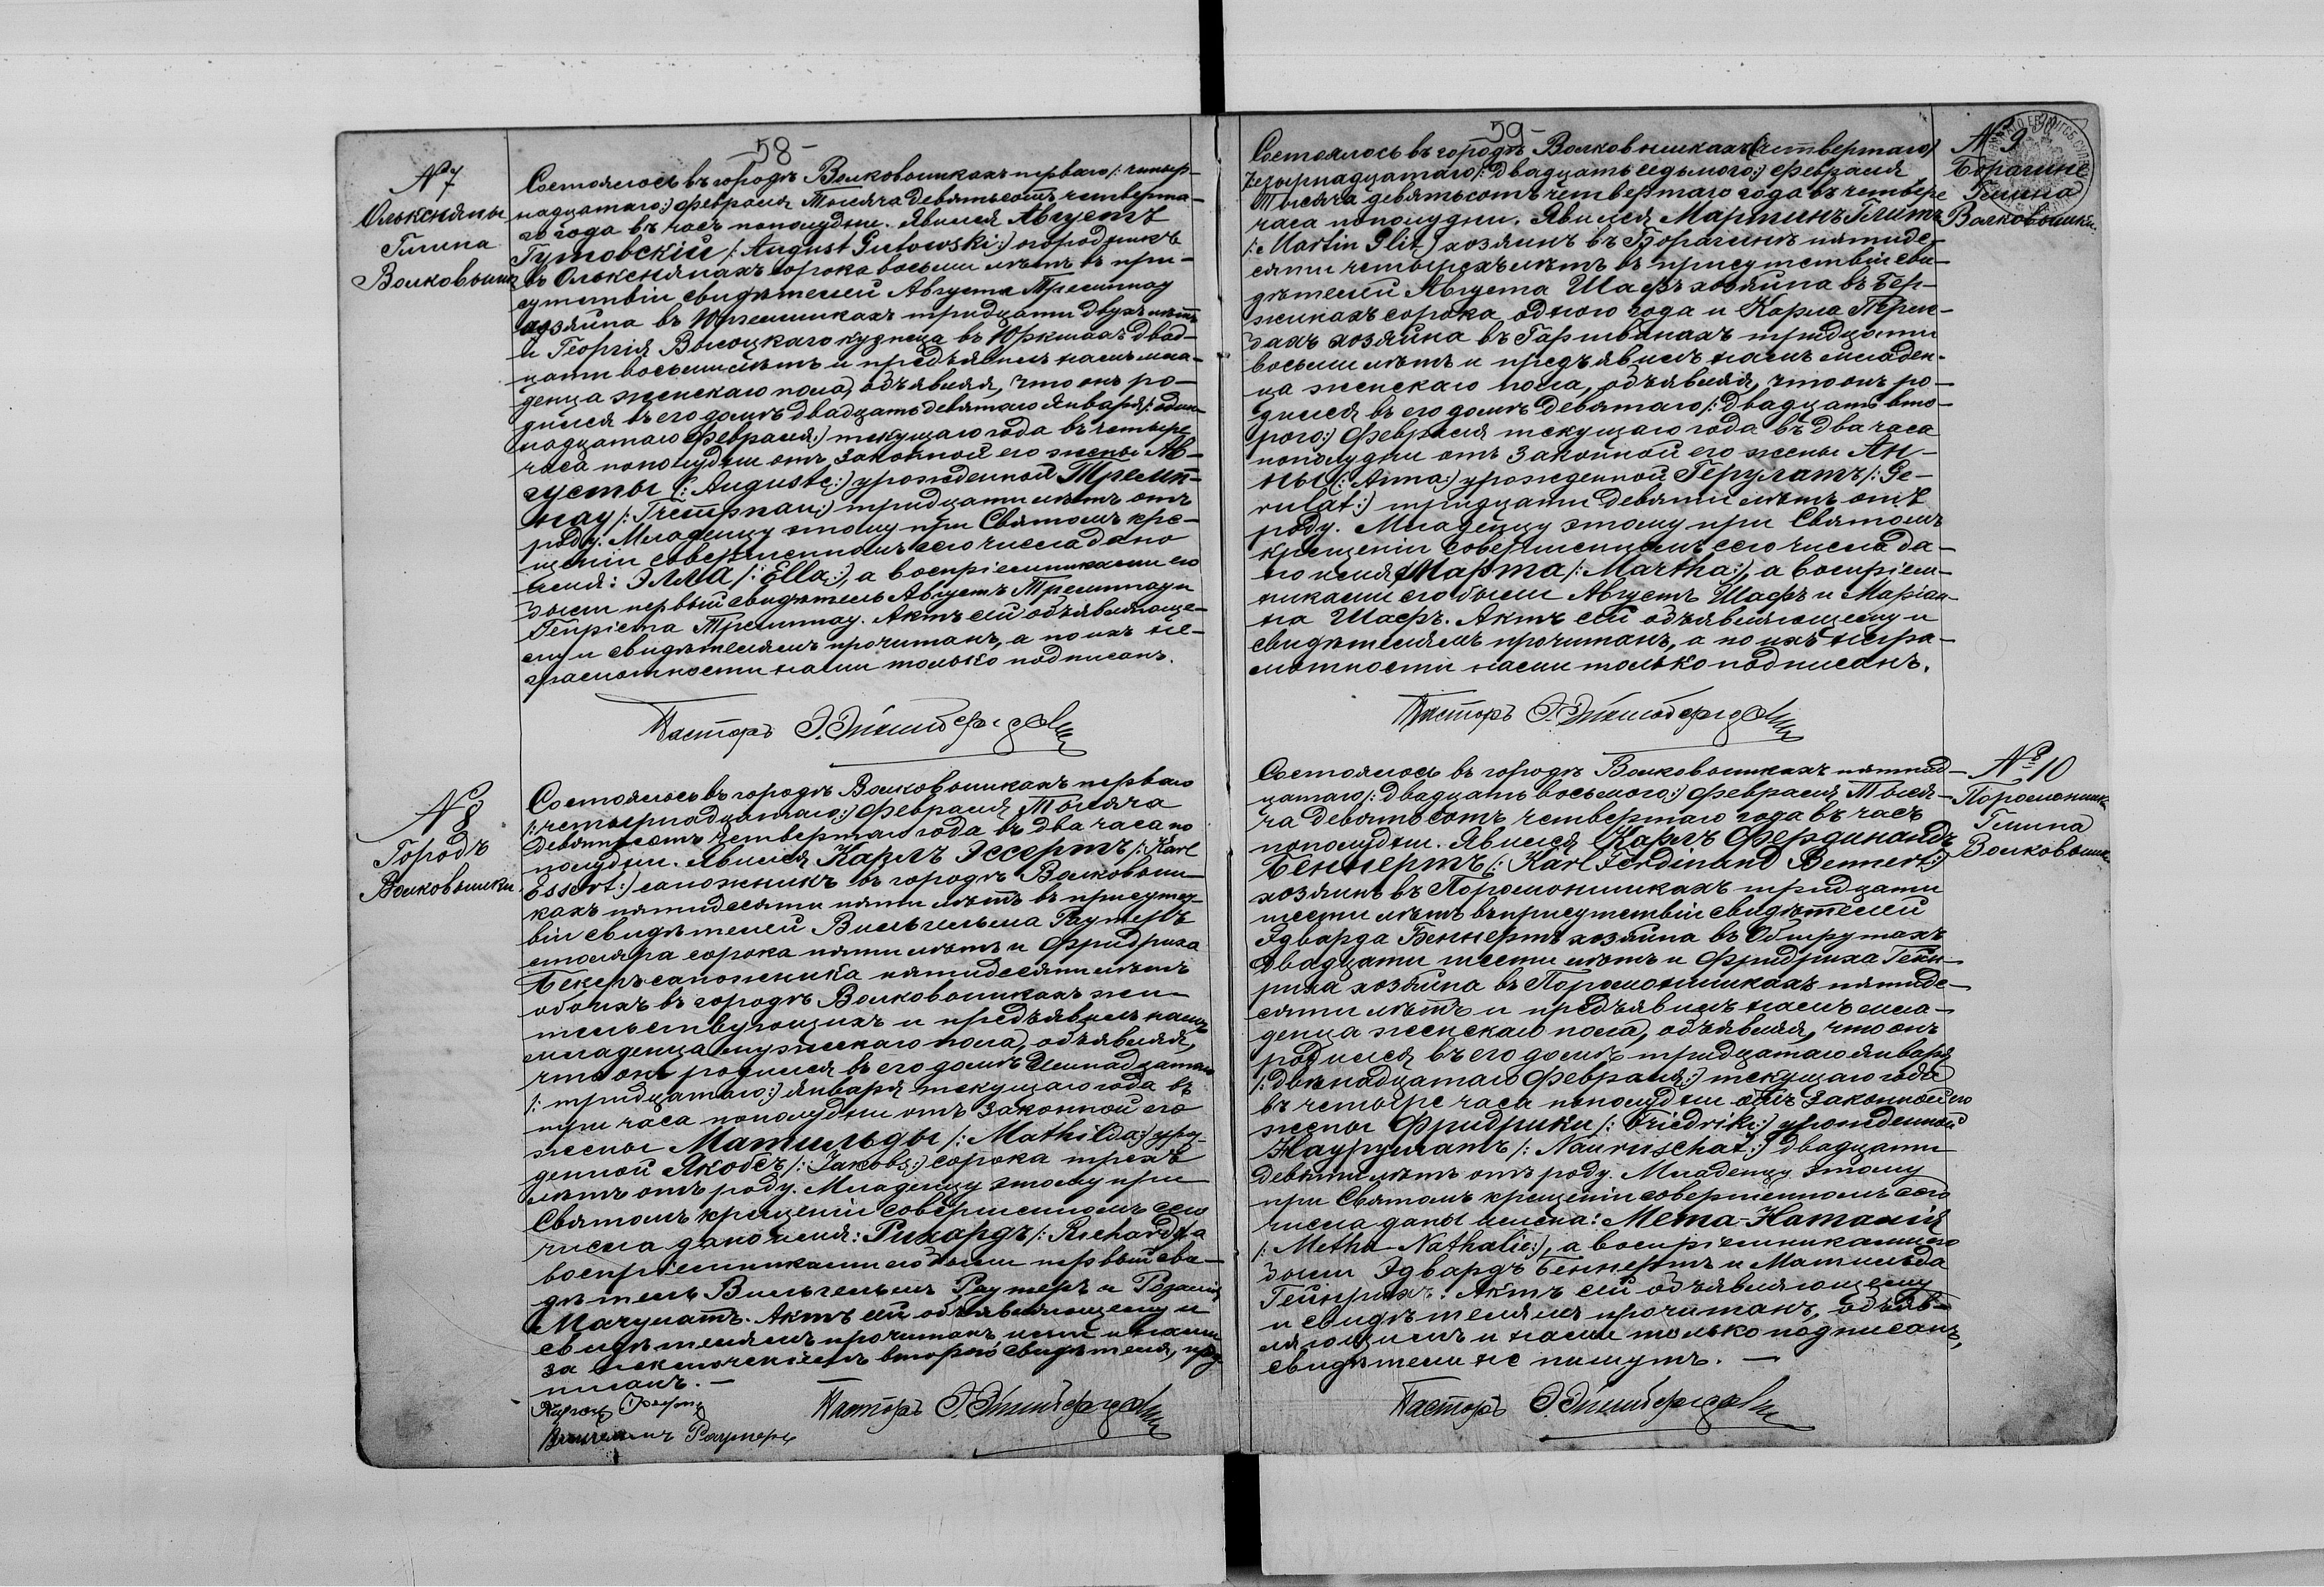 -58-
№ 7
Ольксняны
Гмина
Волковышки
Состоялось въ городѣ Волковышкахъ перваго /: четыр-
надцатаго :/ Февраля Тысяча девятьсотъ четверта-
го года въ часъ пополудни. Явился Августъ
Гутовскій /: August Gutowski :/ огородникъ
въ Ольксня­нахъ сорока восьми лѣтъ въ при-
сутствіи свидѣтелей Августа Тремпнау
хозяина въ тридцати двухъ лѣтъ
и Георгія Высоцкаго кузнеца въ Юркшахъ двад-
цати восьми лѣтъ и предъявилъ намъ мла-
денца женскаго пола, объявляя, что онъ ро-
дился въ его домѣ двадцать девятаго Января /: один-
надцатаго Февраля :/ текущаго года въ четыре
часа пополудни отъ законной его жены Ав-
густы /: Auguste :/ урожденной Тремп-
нау /: :/ тридцати лѣтъ отъ
роду. Младенцу этому при Святомъ кре-
щеніи совершенномъ сего числа дано
имя: Элла /: Ella :/, а воспріемниками его
были первый свидѣтель Августъ Тремпнау и
Генріета Тремпнау. Актъ сей объявляюще-
му и свидѣтелямъ прочитанъ, а по ихъ не-
грамотности нами только подписанъ.
Пасторъ
№ 8
Городъ
Волковышки
Состоялось въ городѣ Волковышкахъ перваго
/: четырнадцатаго :/ Февраля Тысяча
девятьсотъ четвертаго года въ два часа по
полудни. Явился Карлъ Эссертъ /: Karl
Essert :/ сапожникъ въ городѣ Волковыш-
кахъ пятидесяти пяти лѣтъ въ присутст-
віи свидѣтелей Вильгельма Раутеръ
столяра сорока пяти лѣтъ и Фридриха
Бекеръ сапожника пятидесяти лѣтъ
обоихъ въ городѣ Волковышкахъ жи-
тельствующихъ и предъявилъ намъ
младенца мужскаго пола, объявляя,
что онъ родился въ его домѣ семнадцатаго
/: тридцатаго :/ Января текущаго года въ
три часа пополудни отъ законной его
жены Матильды /: Mathilda :/ уро-
денной Якобсъ /: Jakobs :/ сорока трехъ
лѣтъ отъ роду. Младенцу этому при
Святомъ крещеніи совершенномъ сего
числа дано имя: Рихардъ /: Richard :/, а
воспріемниками его были первый сви-
дѣтель Вильгельмъ Раутеръ и Розалія
Мачулатъ. Актъ сей объявляющему и
свидѣтелямъ прочитанъ ими и нами
за исключеніемъ второго свидѣтеля, под-
писанъ.
Вильгельмъ Раутеръ
Пасторъ
-59-
№ 9
Гмина
Волковышки
Состоялось въ городѣ Волковышкахъ (четвертаго)
четырнадцатаго /: двадцать седьмого :/ Февраля
Тысяча девятьсотъ четвертаго года въ четыре
часа пополудни. Явился Мартинъ Плитъ
/: Martin Plit :/ хозяинъ въ пятиде-
сяти четырехъ лѣтъ въ присутствіи сви-
дѣтелей Августа Шафъ хозяина въ Бер-
жинахъ сорока одного года и Карла
хозяина въ тридцати
восьми лѣтъ и предъявилъ намъ младен-
ца женскаго пола, объявляя, что онъ ро-
дился въ его домѣ девятаго /: двадцать вто-
рого :/ Февраля текущаго года въ два часа
пополудни отъ законной его жены Ан-
ны /: Anna :/ урожденной Герулатъ /: Ge-
rulat :/ тридцати девяти лѣтъ отъ
роду. Младенцу этому при Святомъ
крещеніи совершенномъ сего числа да-
но имя Марта /: Martha :/, а воспріем-
никами его были Августъ Шафъ и Маріан-
на Шафъ. Актъ сей объявляющему и
свидѣтелямъ прочитанъ, а по ихъ негра-
мотности нами только подписанъ.
Пасторъ
№ 10
Гмина
Волковышки
Состоялось въ городѣ Волковышкахъ пятнад-
цатаго /: двадцать восьмого :/ Февраля Тыся-
ча девятьсотъ четвертаго года въ часъ
пополудни. Явился Карлъ Фердинандъ
Беннертъ /: Karl Ferdinand Bennert :/
хозяинъ въ Поромонишкахъ тридцати
шести лѣтъ въ присутствіи свидѣтелей
Эдварда Беннертъ хозяина въ Обшрутахъ
двадцати шести лѣтъ и Фридриха Гейн-
риха хозяина въ Поромонишкахъ пятиде-
сяти лѣтъ и предъявилъ намъ мла-
денца женскаго пола, объявляя, что онъ
родился въ его домѣ тридцатаго Января
/: двѣнадцатаго Февраля :/ текущаго года
въ четыре часа пополудни отъ законной его
жены Фридрики /: Friedrike :/ урожденной
Науруматъ /: Nauruschat :/ двадцати
девяти лѣтъ отъ роду. Младенцу этому
при Святомъ крещеніи совершенномъ сего
числа даны имена: Мета-Наталія
/: Metha Nathalie :/, а воспріемниками его
были Эдвардъ Беннертъ и Матильда
Гейнрихъ. Актъ сей объявляющему
и свидѣтелямъ прочитанъ, объяв-
ляющимъ и нами только подписанъ,
свидѣтели не пишутъ.
Пасторъ